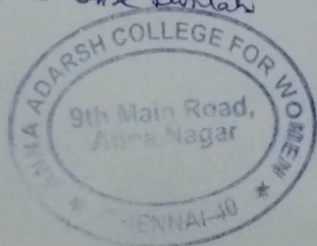 ANNA ADARSH COLLEGE FOR WOMEN
9th Main Road,
Anna Nagar
CHENNAI-40